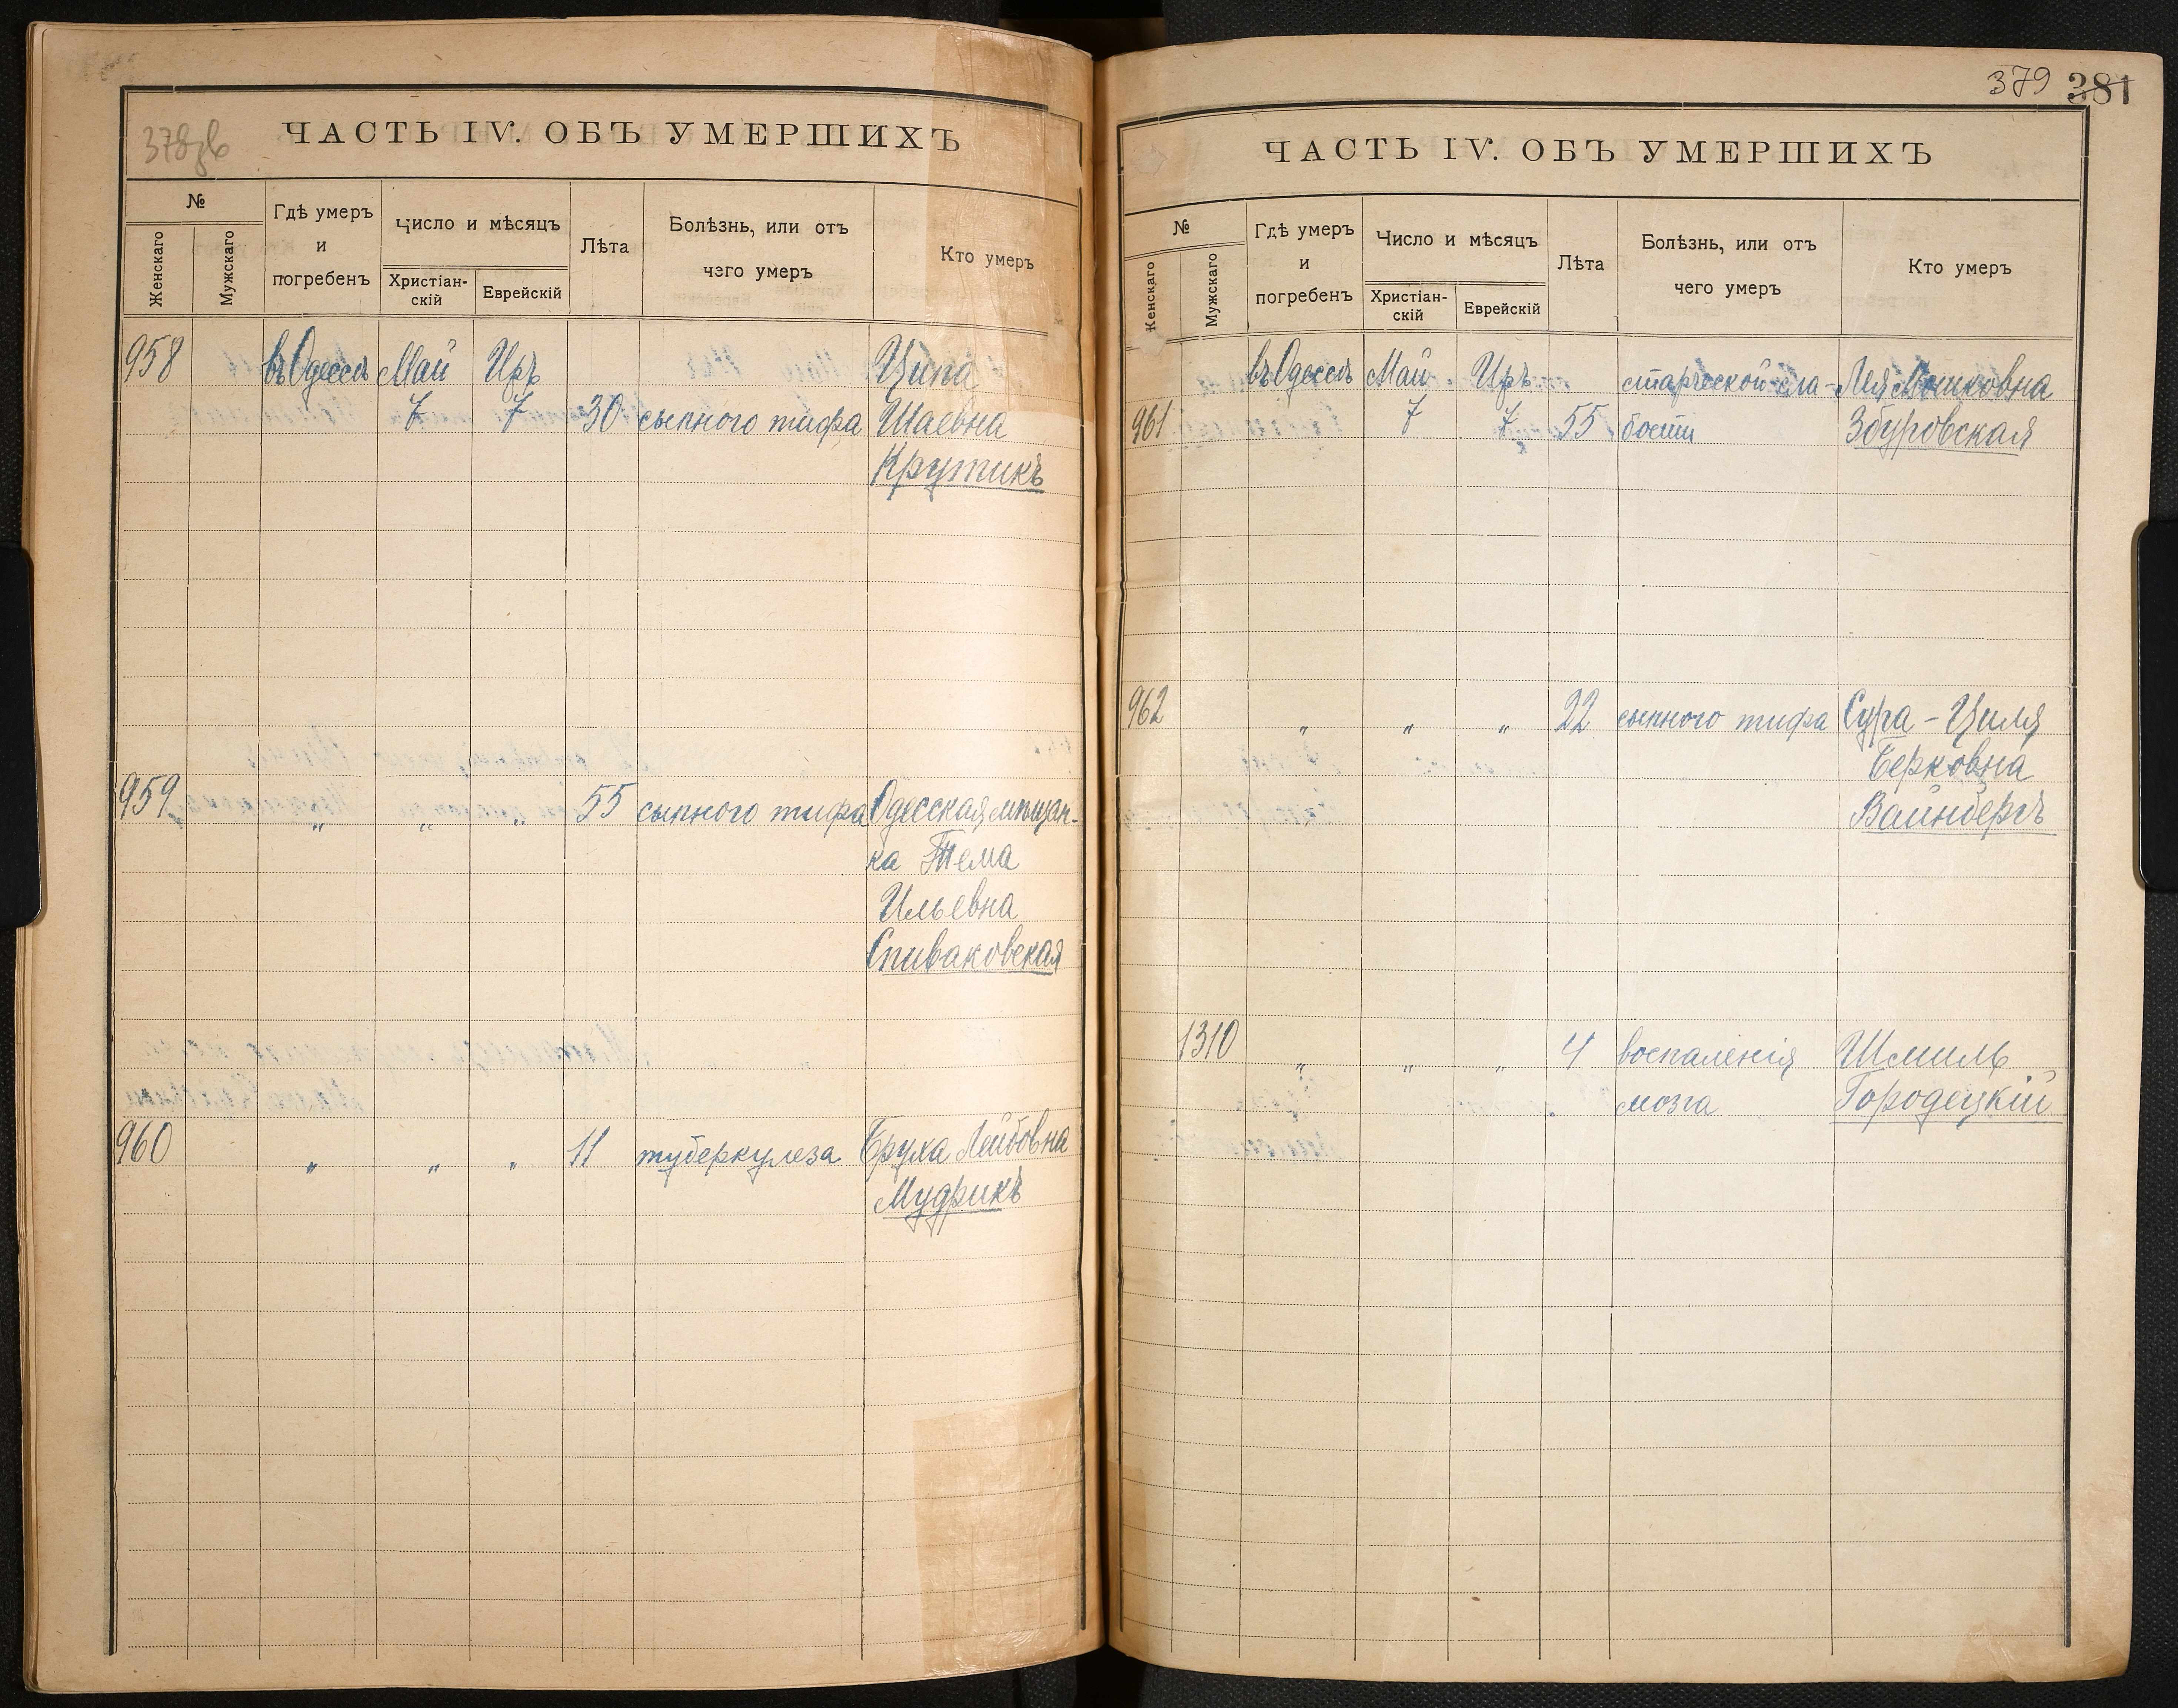 378 об
ЧАСТЬ IV. ОБЪ УМЕРШИХЪ
№
Женскаго
Мужскаго
Гдѣ умеръ
и
погребенъ
Число и мѣсяцъ
Христіан-
скій
Еврейскій
Лѣта
Болѣзнь, или отъ
чэго умеръ
Кто умеръ
958 въ Одессѣ Май Иръ Ципа
7 7 30 сыпного тифа Шаевна
Крутикъ
959 „ „ „ 55 сыпного тифа Одесская мѣщан-
ка Тема
Ильевна
Спиваковская
960 „ „ „ 11 туберкулеза Бруха Лейбовна
Мудрикъ
379 381
ЧАСТЬ IV. ОБЪ УМЕРШИХЪ
№
Женскаго
Мужскаго
Гдѣ умеръ
и
погребенъ
Число и мѣсяцъ
Христіан-
скій
Еврейскій
Лѣта
Болѣзнь, или отъ
чего умеръ
Кто умеръ
въ Одессѣ Май Иръ старческой сла- Лея
961 7 7 55 бости Збуровская
962 „ „ „ 22 сыпного тифа Сура-Циля
Берковна
Вайнбергъ
1310 „ „ „ 4 воспаленія Шмиль
мозга Городецкій